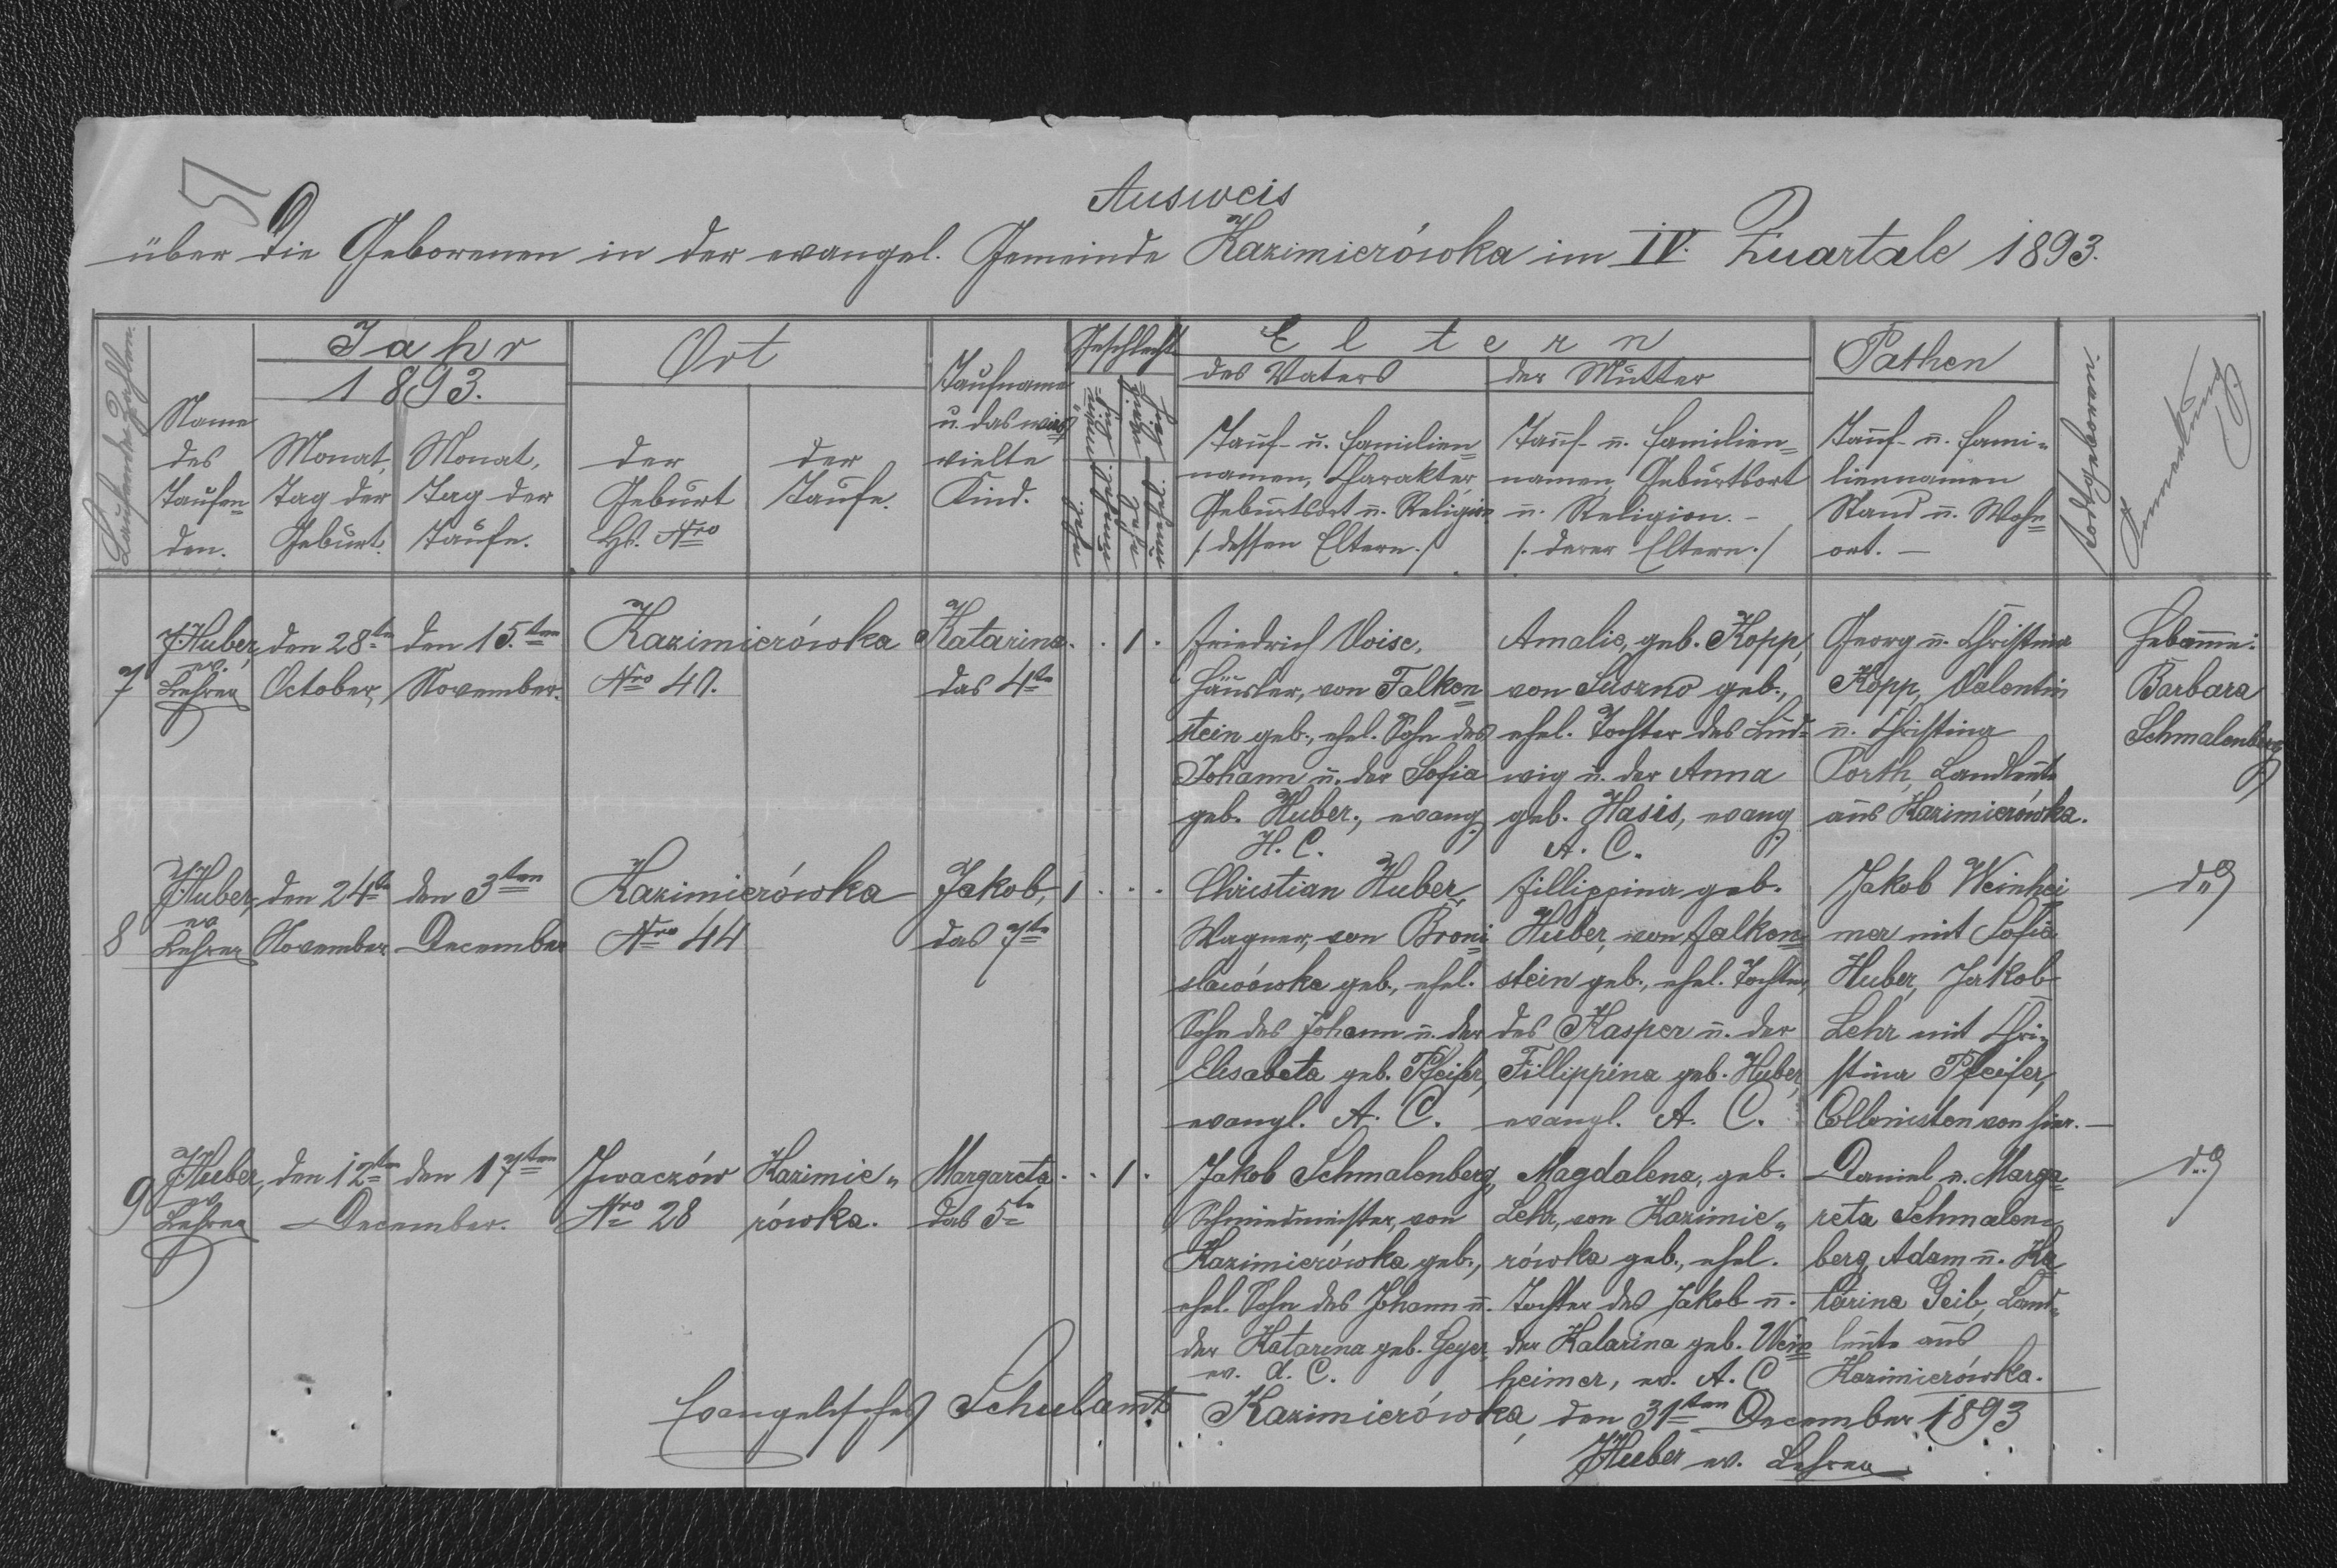 51
Ausweis
über die Geborenen in der evangel. Gemeinde Kazimierówka im IV. Quartale 1893.
Laufende Zahlen.
Name
des
Taufen-
den.
Jahr
1893.
Monat,
Tag der
Geburt.
Monat,
Tag der
Taufe.
Ort
der
Geburt
Hs. Nro
der
Taufe.
Taufname
u. das wie
vielte
Kind.
Geschlecht
Eltern
des Vaters
Tauf- u. Familien=
namen, Charakter,
Geburtsort u. Religion
/: dessen Eltern :/
der Mutter
Tauf- u. Familien=
namen, Geburtsort
u. Religion. -
/: derer Eltern :/
Pathen
Tauf- u. Fami-
liennamen
Stand u. Wohn=
ort. -
todtgeboren.
Anmerkung
7
J. Huber,
ev.
Lehrer
den 28ten
October,
den 15.ten
November.
Kazimierówka
Nro 40.
Katarina
das 4te
. . 1 .
Friedrich Voise,
Häusler, von Falken=
stein geb., ehel. Sohn des
Johann u. der Sofia
geb. Huber., evang
H. C.
Amalie, geb. Kopp,
von Suszno geb.,
ehel. Tochter des Lud=
wig u. der Anna
geb. Hasis, evang
A. C.
Georg u. Christina
Kopp, Valentin
u. Christina
Porth, Landleute
aus Kazimierówka.
Hebamme:
Barbara
Schmalenberg
8
J. Huber,
ev
Lehrer
den 24te
November
den 3ten
December
Kazimierówka
Nro 44
Jakob,
das 7te
1 . . .
Christian Huber,
Wagner, von Broni=
slawówka geb., ehel.
Sohn des Johann u. der
Elisabeta geb. Pfeifer,
evangl. A. C.
Fillippina geb.
Huber, von Falken=
stein geb., ehel. Tochter,
des Kasper u. der
Fillippina geb. Huber,
evangl. A. C.
Jakob Weinhei=
mer mit Sofia
Huber, Jakob
Lehr mit Chri=
stina Pfeifer,
Collonisten von hier. -
dto
9
J. Huber,
ev
Lehrer
den 12ten
December.
den 17ten
Iwaczów
Nro 28
Kazimie„
rówka.
Margareta
das 5te
. . 1 .
Jakob Schmalenberg,
Schmiedmeister, von
Kazimierówka geb.,
ehel. Sohn des Johann u.
der Katarina geb. Geyer,
ev. A. C.
Magdalena, geb.
Lehr, von Kazimie„
rówka geb., ehel.
Tochter des Jakob u.
der Katarina geb. Wein=
heimer, ev. A. C
Daniel u. Marga=
reta Schmalen=
berg, Adam u. Ka=
tarina Geib, Land„
leute aus
Kazimierówka.
dto
Evangelisches Schulamt Kazimierówka, den 31ten December 1893
JHuber ev. Lehrer